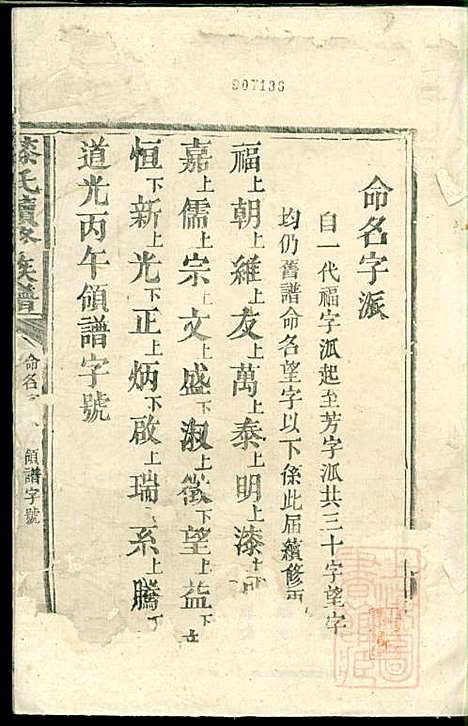 907136
命名字派
自一代福字派起至芳字派共三十字望字
均仍舊譜命名望字以下係此屆續修
福上朝上維上友上萬上泰上明上漆
嘉上儒上宗上文上盛下淑上徵下望上益下
恒下新上光下正上炳下啟上瑞上系上騰
道光丙午領譜字號
漆氏續修族譜
命名
領譜字號